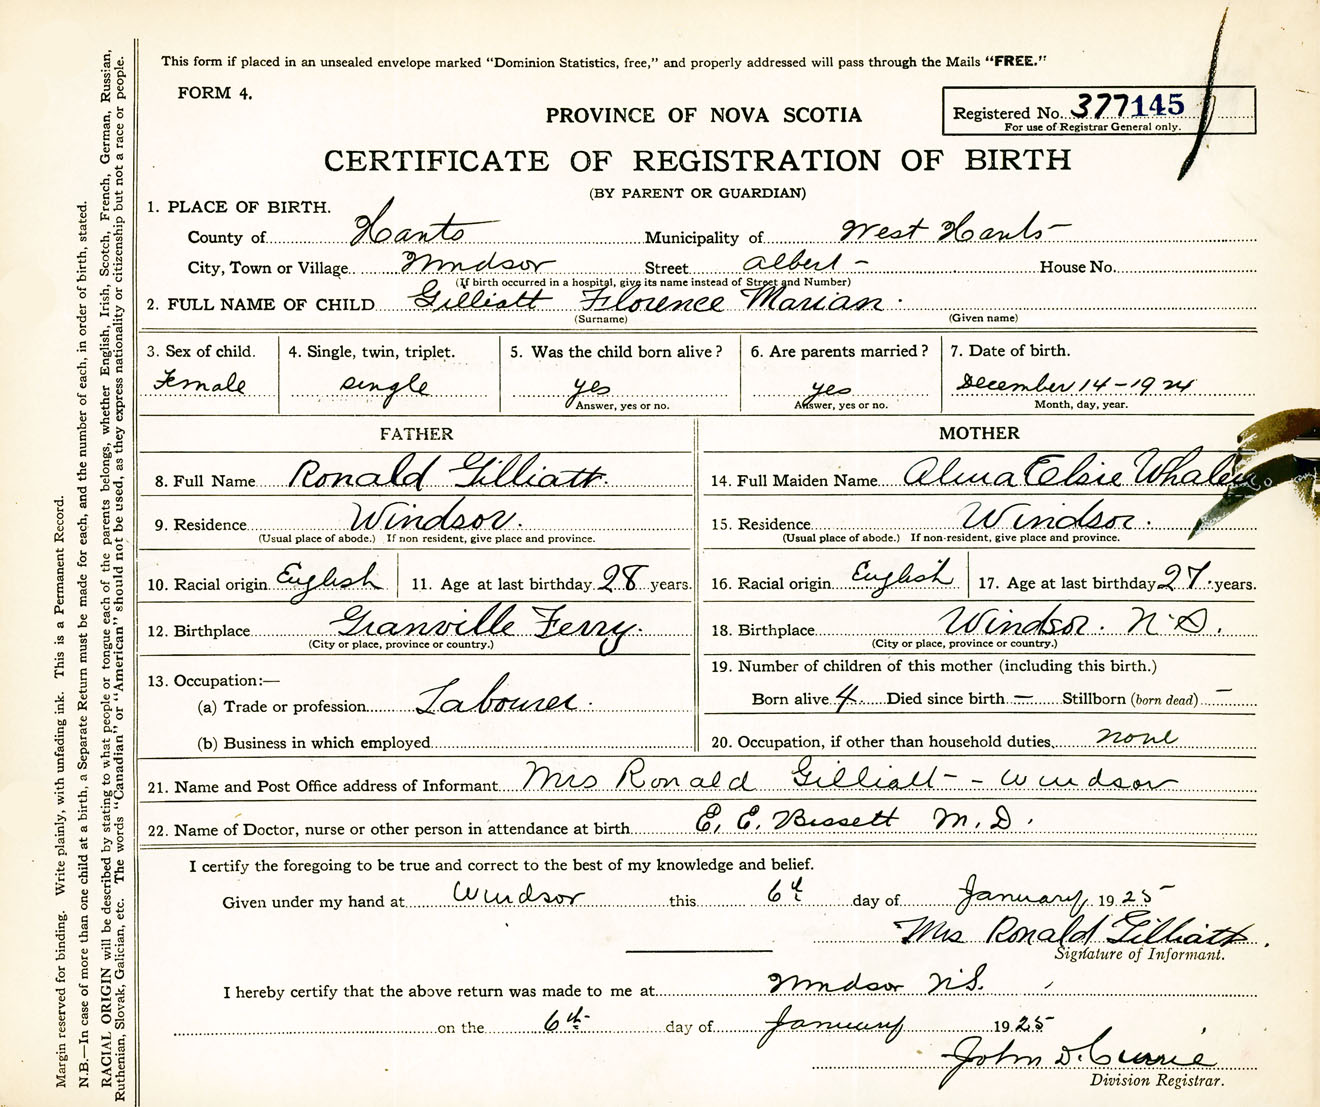 This form if placed in an unsealed envelope marked "Dominion Statistics, free," and properly addressed will pass through the Mails "FREE."
FORM 4.
PROVINCE OF NOVA SCOTIA
Registered No. 377145
For use of Registrar General only.
CERTIFICATE OF REGISTRATION OF BIRTH
(BY PARENT OR GUARDIAN)
1. PLACE OF BIRTH.
County of Hants Municipality of West Hants
City, Town or Village Windsor Street Albert - House No.
(If birth occurred in a hospital, give its name instead of Street and Number)
2. FULL NAME OF CHILD Gilliatt Florence Marian
(Surname) (Given name)
3. Sex of child. 4. Single, twin, triplet. 5. Was the child born alive? 6. Are parents married? 7. Date of birth.
Female single yes yes December 14-1924
Answer, yes or no. Answer, yes or no. Month, day, year.
FATHER MOTHER
8. Full Name Ronald Gilliatt. 14. Full Maiden Name Alma Elsie Whalen
9. Residence Windsor. 15. Residence Windsor.
(Usual place of abode.) If non resident, give place and province. (Usual place of abode.) If non-resident, give place and province.
10. Racial origin English 11. Age at last birthday 28 years. 16. Racial origin English 17. Age at last birthday 27 years.
12. Birthplace Granville Ferry. 18. Birthplace Windsor. N.S.
(City or place, province or country.) (City or place, province or country.)
19. Number of children of this mother (including this birth.)
13. Occupation:—
(a) Trade or profession Labourer. Born alive 4 Died since birth — Stillborn (born dead) —
(b) Business in which employed 20. Occupation, if other than household duties, none
21. Name and Post Office address of Informant Mrs Ronald Gilliatt - - Windsor
22. Name of Doctor, nurse or other person in attendance at birth E. E. Bissett M.D.
I certify the foregoing to be true and correct to the best of my knowledge and belief.
Given under my hand at Windsor this 6th day of January 1925
Mrs Ronald Gilliatt.
Signature of Informant.
I hereby certify that the above return was made to me at Windsor N.S.
on the 6th day of January 1925
John D. Currie
Division Registrar.
Margin reserved for binding. Write plainly, with unfading ink. This is a Permanent Record.
N.B.—In case of more than one child at a birth, a Separate Return must be made for each, and the number of each, in order of birth, stated.
RACIAL ORIGIN will be described by stating to what people or tongue each of the parents belongs, whether English, Irish, Scotch, French, German, Russian,
Ruthenian, Slovak, Galician, etc. The words "Canadian" or "American" should not be used, as they express nationality or citizenship but not a race or people.